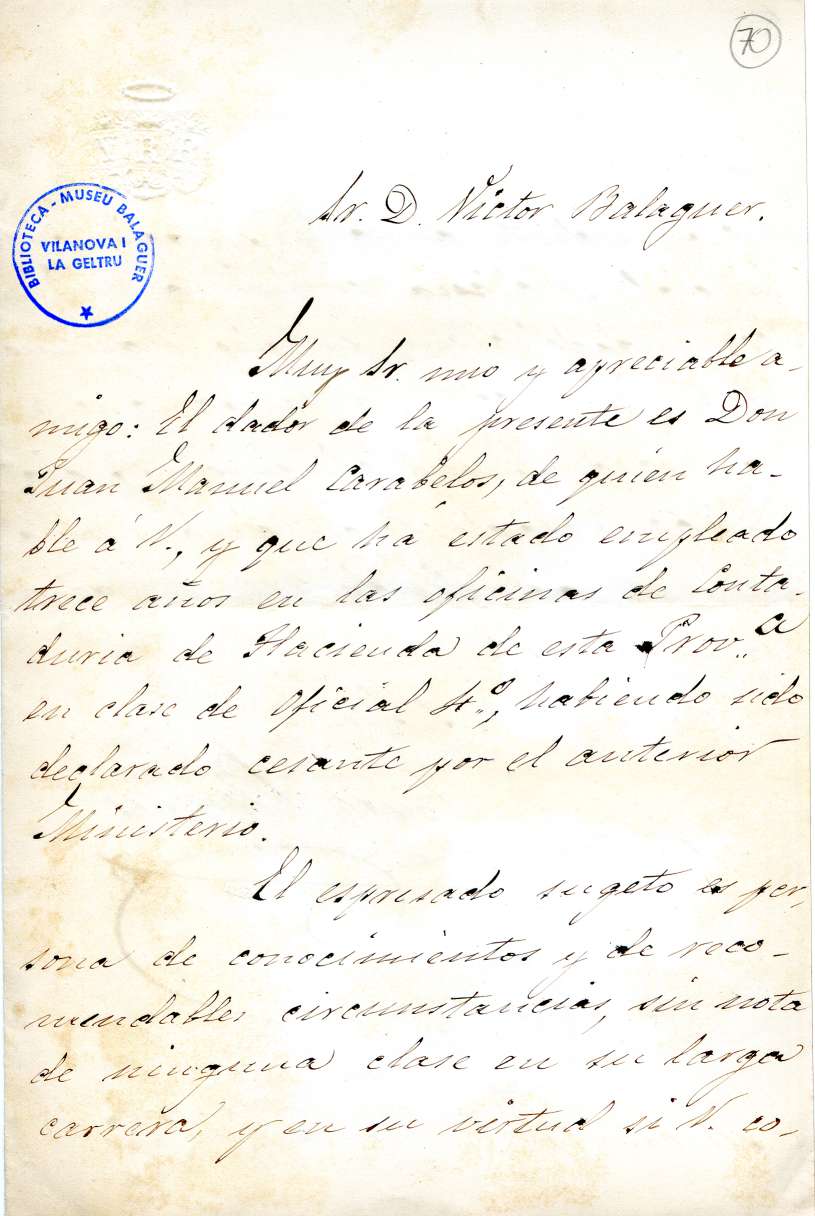 70
BIBLIOTECA - MUSEU BALAGUER
VILANOVA I
LA GELTRU
Sr. D. Victor Balaguer.
Muy Sr. mio y apreciable a-
migo: El dador de la presente es Don
Juan Manuel Carabelos, de quien ha-
ble á V., y que ha estado empleado
trece años en las oficinas de Conta-
duria de Hacienda de esta Prov.ª
en clase de Oficial 4.º, habiendo sido
declarado cesante por el anterior
Ministerio.
El espresado sugeto es per-
sona de conocimientos y de reco-
mendables circunstancias, sin nota
de ninguna clase en su larga
carrera, y en su virtud si V. co-